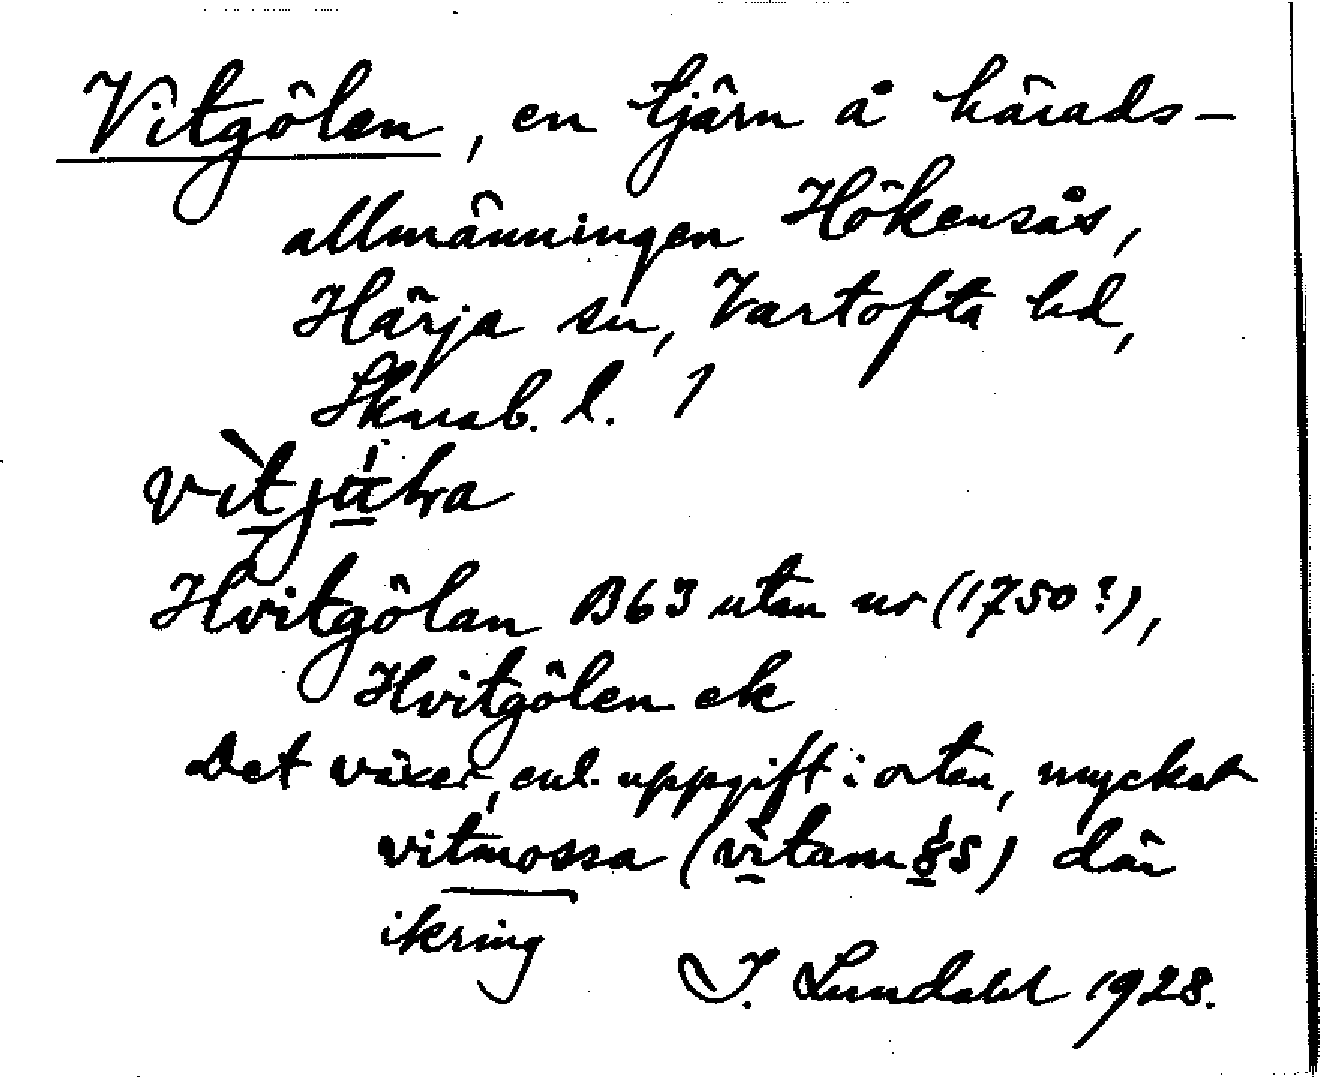 Vitgölen, en tjärn å härads-
allmänningen Hökensås,
Härja sn, Vartofta hd,
Skarab. l. 1
Hvitgölan B63 utan nr (1750?),
Hvitgölen ek
Det växer, enl. uppgift i orten, mycket
vitmossa (vitam) där
ikring
I. Lundahl 1928.